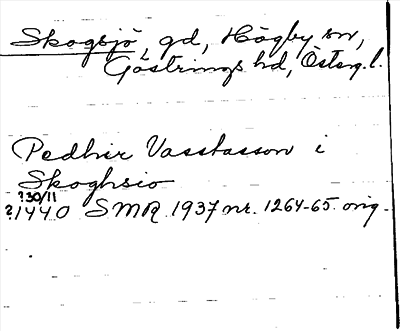 Skogsjö, gd, Högby sn,
Göstrings hd, Österg. l.
Pedher Vasstasson i
Skoghsio
?30/11
?1440 SMR 1937 nr. 1264-65 orig.